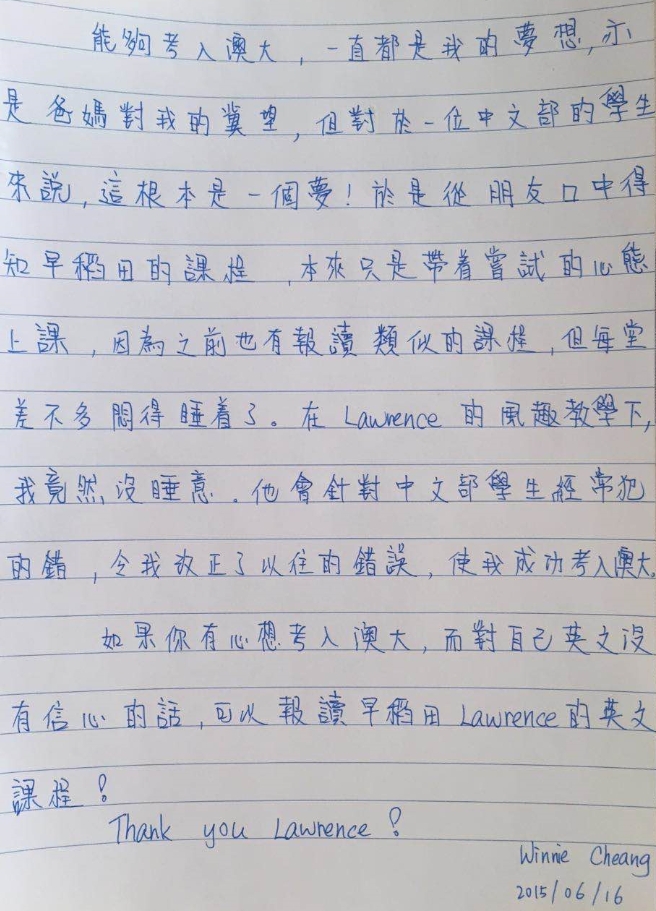 能夠考入澳大，一直都是我的夢想，亦
是爸媽對我的冀望，但對於一位中文部的學生
來說，這根本是一個夢！於是從朋友口中得
知早稻田的課程，本來只是帶着嘗試的心態
上課，因為之前也有報讀類似的課程，但每堂
差不多悶得睡着了。在 Lawrence 的風趣教學下，
我竟然沒睡意。他會針對中文部學生經常犯
的錯，令我改正了以往的錯誤，使我成功考入澳大。
如果你有心想考入澳大，而對自己英文沒
有信心的話，可以報讀早稻田 Lawrence 的英文
課程！
Thank you Lawrence !
Winnie Cheang
2015/06/16